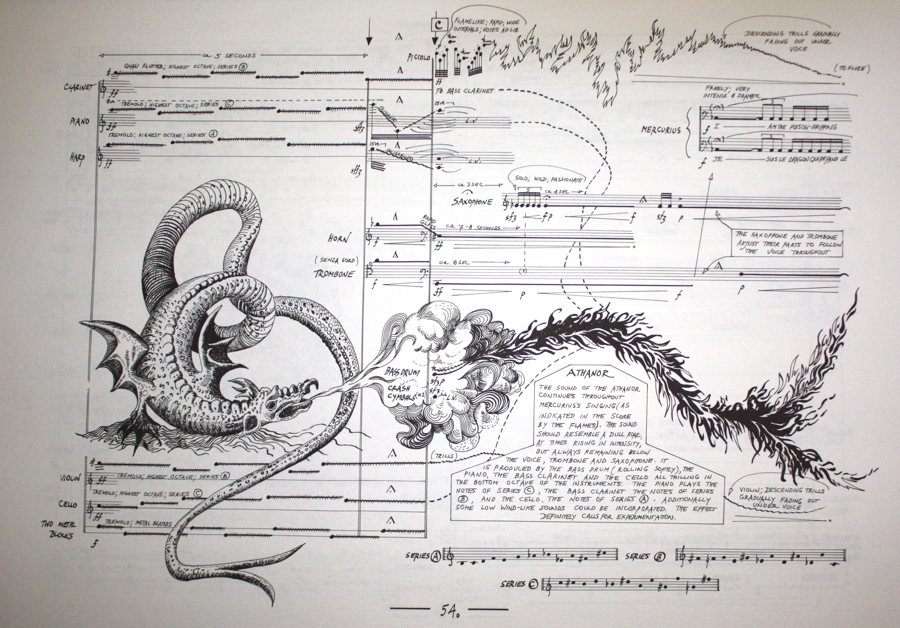 C
FLAMELIKE; RAPID; WIDE
INTERVALS; NOTES AD LIB
DESCENDING TRILLS GRADUALLY
FADING OUT UNDER
VOICE
(TO FLUTE)
ca 5 SECONDS
PICCOLO
ff
QUASI FLUTTER; HIGHEST OCTAVE; SERIES B
CLARINET
ff
TO BASS CLARINET
FREELY; VERY
INTENSE & DRAMATIC
TREMOLO; HIGHEST OCTAVE; SERIES C
PIANO
ff
sffz
L.V.
MERCURIUS
f I AM THE POISON-DRIPPING
TREMOLO; HIGHEST OCTAVE; SERIES A
HARP
ff
sffz
L.V.
f JE SUIS LE DRAGON QUI REPAND LE
ca 3 SEC
SOLO; WILD; PASSIONATE
ca 4 SEC
SAXOPHONE
sf3 f p f sf3 p
ca 7-8 SECONDS
HORN
ff
THE SAXOPHONE AND TROMBONE
ADJUST THEIR PARTS TO FOLLOW
THE VOICE THROUGHOUT
(SENZA SORD)
TROMBONE
ca 8 SEC
ff p f p
BASS DRUM
CRASH
CYMBALS
sf3 p
sf3
L.V.
ATHANOR
THE SOUND OF THE ATHANOR
CONTINUES THROUGHOUT
MERCURIUS'S SINGING (AS
INDICATED IN THE SCORE
BY THE FLAMES). THE SOUND
SHOULD RESEMBLE A DULL ROAR,
AT TIMES RISING IN INTENSITY,
BUT ALWAYS REMAINING BELOW
THE VOICE, TROMBONE AND SAXOPHONE. IT
IS PRODUCED BY THE BASS DRUM (ROLLING SOFTLY), THE
PIANO, THE BASS CLARINET AND THE CELLO ALL TRILLING IN
THE BOTTOM OCTAVE OF THE INSTRUMENTS. THE PIANO PLAYS THE
NOTES OF SERIES C, THE BASS CLARINET THE NOTES OF SERIES
B, AND THE CELLO, THE NOTES OF SERIES A. ADDITIONALLY
SOME LOW WIND-LIKE SOUNDS COULD BE INCORPORATED. THE EFFECT
DEFINITELY CALLS FOR EXPERIMENTATION.
(TRILLS)
VIOLIN; DESCENDING TRILLS
GRADUALLY FADING OUT
UNDER VOICE
VIOLIN
TREMOLO; HIGHEST OCTAVE; SERIES B
CELLO
TREMOLO; HIGHEST OCTAVE; SERIES C
TWO METAL
BLOCKS
TREMOLO; METAL BEATERS
f
SERIES A
SERIES B
SERIES C
54.